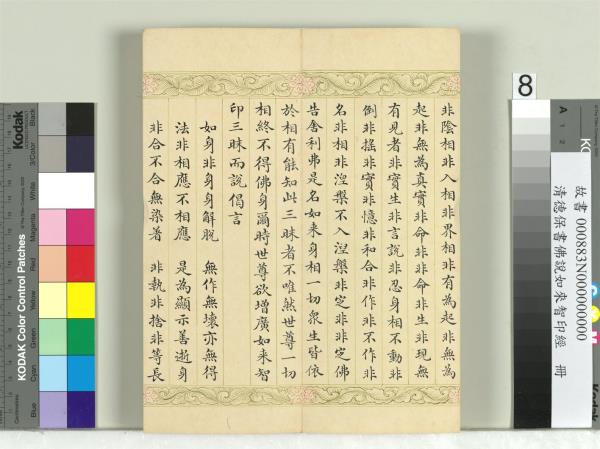 非陰相非入相非界相非有為起非無為
起非無為真實非命非非命非生非現無
有見者非實生非言說非忍身相不動非
倒非搖非實非憶非和合非作非不作非
名非相非涅槃不入涅槃非定非非定佛
告舍利弗是名如來身相一切眾生皆依
於相有能知此三昧者不唯然世尊一切
相終不得佛身爾時世尊欲增廣如來智
印三昧而說偈言
如身非身身解脫 無作無壞亦無得
法非相應不相應 是為顯示善逝身
非合不合無染著 非執非捨非等長
8
故書 000883N000000000
清德保書佛說如來智印經 冊
A 1 2
Kodak
KODAK Color Control Patches
Blue
Cyan
Green
Yellow
Red
Magenta
White
3/Color
Black